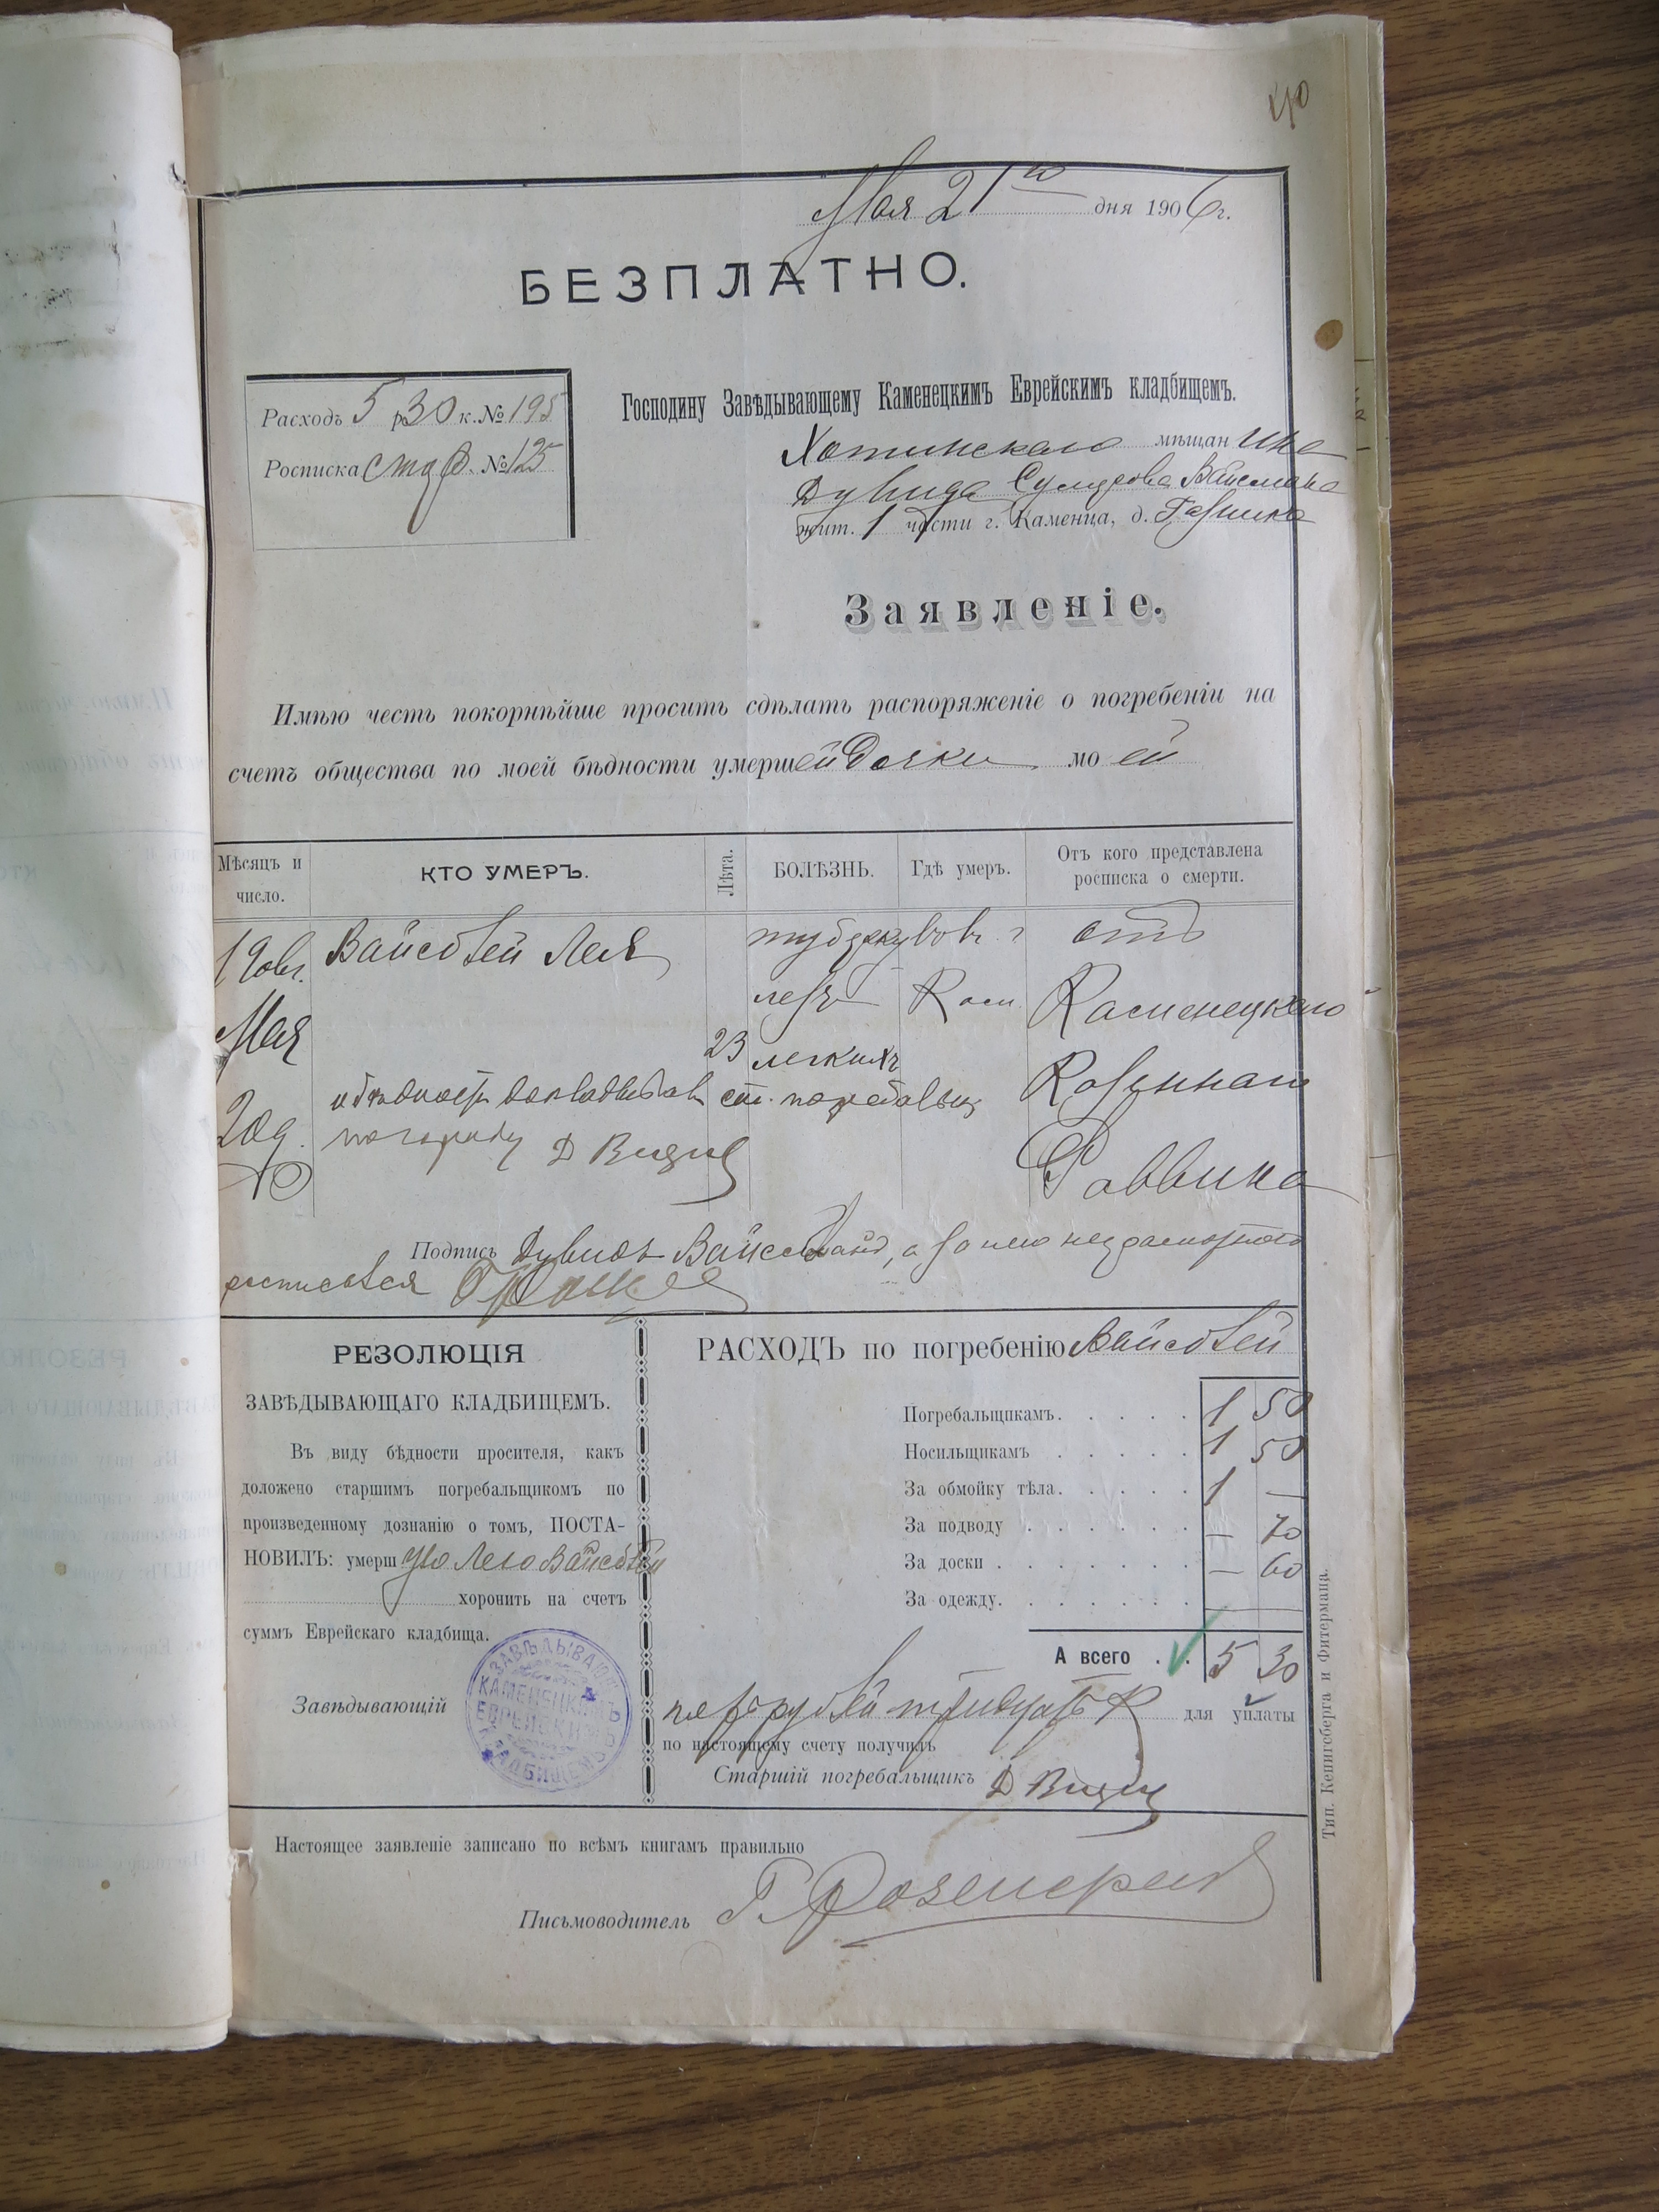 40
Мая 21го дня 1906 г.
БЕЗПЛАТНО.
Расходъ 5 р 30 к. № 195
Росписка № 125
Господину Завѣдывающему Каменецкимъ Еврейскимъ кладбищемъ.
Хотинскаго мѣщанина
Дувида Вайсмана
жит. 1 части г. Каменца, д.
Заявленіе.
Имѣю честь покорнѣйше просить сдѣлать распоряженіе о погребеніи на
счетъ общества по моей бѣдности умершей дочки моей
Мѣсяцъ и число.
КТО УМЕРЪ.
Лѣта.
БОЛѢЗНЬ.
Гдѣ умеръ.
Отъ кого представлена росписка о смерти.
19
Мая
Вайсблей Лея
23
легкихъ
г Кам.
отъ
Каменецкаго
Казеннаго
Раввина
о бѣдности ст. погребальщ
Д
Подпись Дувидъ а за него неграмотнаго
росписался
РЕЗОЛЮЦІЯ
ЗАВѢДЫВАЮЩАГО КЛАДБИЩЕМЪ.
Въ виду бѣдности просителя, какъ
доложено старшимъ погребальщикомъ по
произведенному дознанію о томъ, ПОСТА-
НОВИЛЪ: умершую Лею Вайсблей
хоронить на счетъ
суммъ Еврейскаго кладбища.
Завѣдывающій
ЗАВѢДЫВАЮЩ
КАМЕНЕЦКИМЪ
ЕВРЕЙСКИМЪ
КЛАДБИЩЕМЪ
РАСХОДЪ по погребенію Вайсблей
Погребальщикамъ. 1 50
Носильщикамъ 1 50
За обмойку тѣла. 1 —
За подводу — 70
За доски — 60
За одежду.
А всего 5 30
пять рублей тридцать к для уплаты
по настоящему счету получилъ
Старшій погребальщикъ Д
Настоящее заявленіе записано по всѣмъ книгамъ правильно
Письмоводитель Г.
Тип. Кенигсберга и Фитермана.